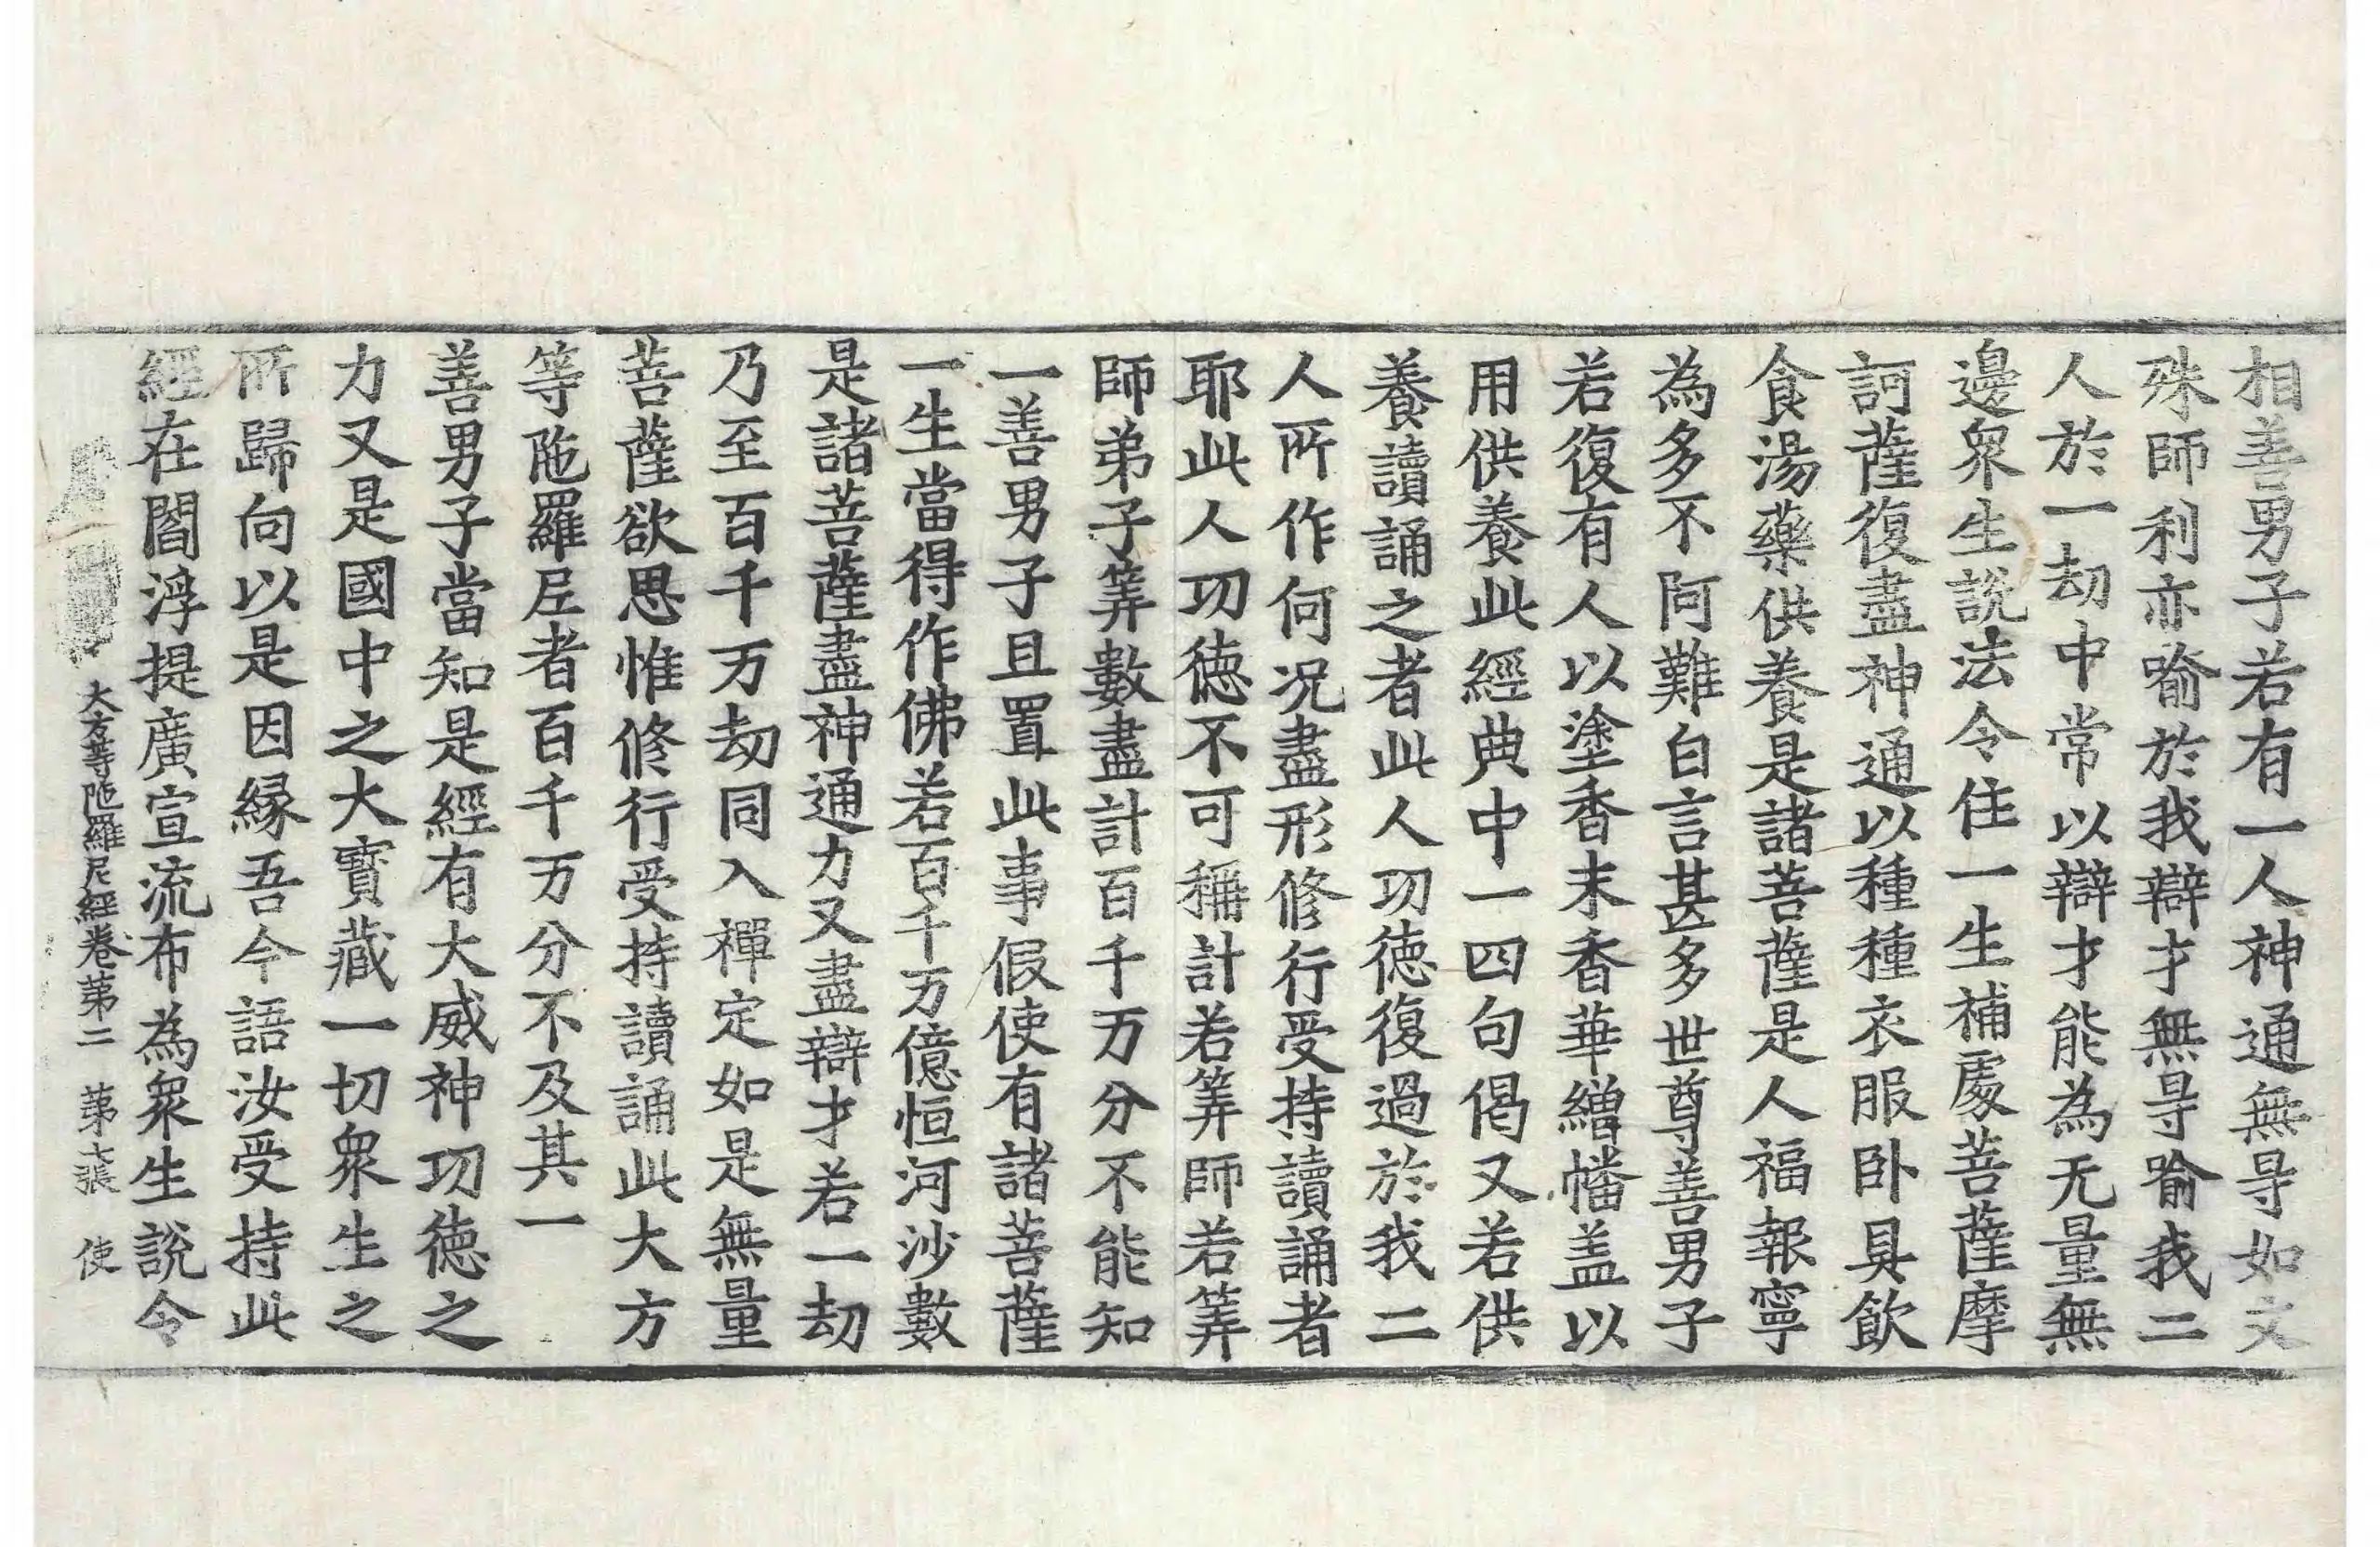 相善男子若有一人神通無㝵如文
殊師利亦喻於我辯才無㝵喻我二
人於一劫中常以辯才能為无量無
邊衆生說法令住一生補處菩薩摩
訶薩復盡神通以種種衣服卧具飲
食湯藥供養是諸菩薩是人福報寧
為多不阿難白言甚多世尊善男子
若復有人以塗香末香華繒幡盖以
用供養此經典中一四句偈又若供
養讀誦之者此人功德復過於我二
人所作何况盡形修行受持讀誦者
耶此人功德不可稱計若筭師若筭
師弟子筭數盡計百千万分不能知
一善男子且置此事假使有諸菩薩
一生當得作佛若百千万億恒河沙數
是諸菩薩盡神通力又盡辯才若一劫
乃至百千万劫同入禪定如是無量
菩薩欲思惟修行受持讀誦此大方
等陁羅尼者百千万分不及其一
善男子當知是經有大威神功德之
力又是國中之大寶藏一切衆生之
所歸向以是因緣吾今語汝受持此
經在閻浮提廣宣流布為衆生說令
大方等陁羅尼經卷第二 第七張 使